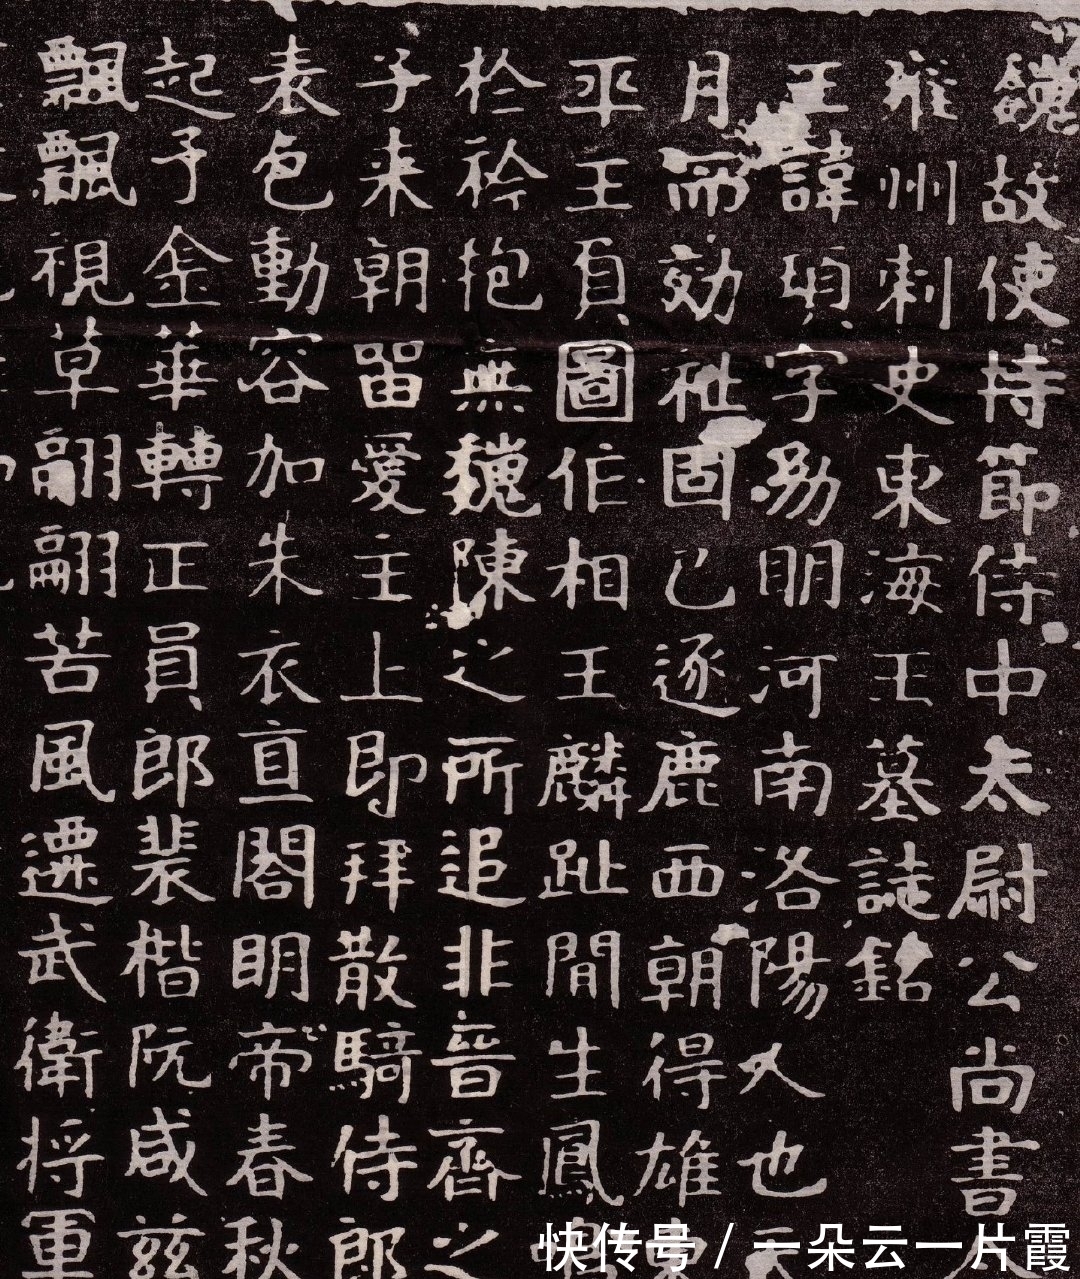 魏故使持節侍中太尉公尚書
雍州刺史東海王墓誌銘
王諱頊字㓜明河南洛陽人也
月而効祉固已逐鹿西朝得雄
平王負圖作相王麟趾間生鳳
於衿抱無魏陳之所追非晉齊之
子來朝留愛主上即拜散騎侍郎
表色動容加朱衣直閤明帝春秋
起予金華轉正員郎裴楷阮咸茲
飄飄視草翩翩苦風遷武衛将軍
快传号 / 一朵云一片霞